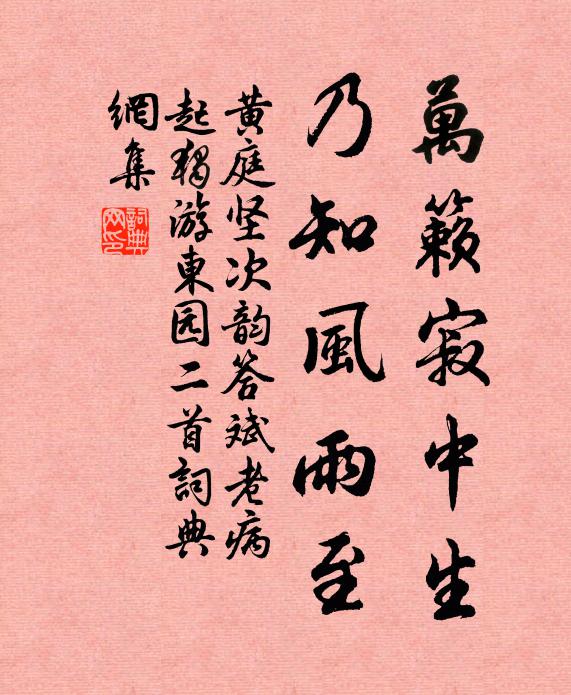 萬籟寂中生
乃知風雨至
黄庭坚次韵答斌老病
起獨游東园二首詞典
網集
詞典
网印